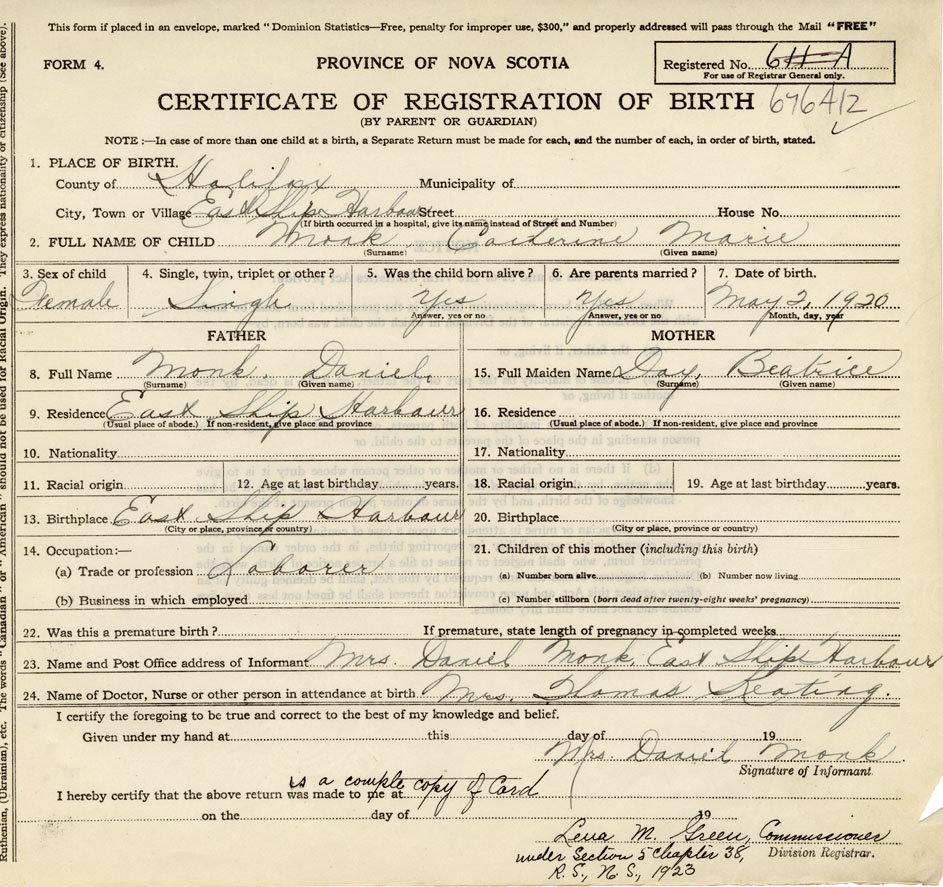 This form if placed in an envelope, marked "Dominion Statistics—Free, penalty for improper use, $300," and properly addressed will pass through the Mail "FREE"
FORM 4.
PROVINCE OF NOVA SCOTIA
Registered No. 611-A
For use of Registrar General only.
CERTIFICATE OF REGISTRATION OF BIRTH 676412
(BY PARENT OR GUARDIAN)
NOTE :—In case of more than one child at a birth, a Separate Return must be made for each, and the number of each, in order of birth, stated.
1. PLACE OF BIRTH.
County of Halifax Municipality of
City, Town or Village East Ship Harbour Street House No.
(If birth occurred in a hospital, give its name instead of Street and Number)
2. FULL NAME OF CHILD Monk Catherine Marie
(Surname) (Given name)
3. Sex of child 4. Single, twin, triplet or other ? 5. Was the child born alive ? 6. Are parents married ? 7. Date of birth.
Female Single Yes Yes May 2, 1920
Answer, yes or no Answer, yes or no Month, day, year
FATHER MOTHER
8. Full Name Monk, Daniel, 15. Full Maiden Name Day, Beatrice
(Surname) (Given name) (Surname) (Given name)
9. Residence East Ship Harbour 16. Residence
(Usual place of abode.) If non-resident, give place and province (Usual place of abode.) If non-resident, give place and province
10. Nationality 17. Nationality
11. Racial origin 12. Age at last birthday years. 18. Racial origin 19. Age at last birthday years.
13. Birthplace East Ship Harbour 20. Birthplace
(City or place, province or country) (City or place, province or country)
14. Occupation:— 21. Children of this mother (including this birth)
(a) Trade or profession Laborer (a) Number born alive (b) Number now living
(b) Business in which employed (c) Number stillborn (born dead after twenty-eight weeks' pregnancy)
22. Was this a premature birth ? If premature, state length of pregnancy in completed weeks
23. Name and Post Office address of Informant Mrs. Daniel Monk, East Ship Harbour
24. Name of Doctor, Nurse or other person in attendance at birth Mrs. Thomas Keating.
I certify the foregoing to be true and correct to the best of my knowledge and belief.
Given under my hand at this day of 19
Mrs. Daniel Monk
Signature of Informant
is a comple copy of Card
I hereby certify that the above return was made to me at
on the day of 19
Lena M. Green, Commissioner
under Section 5 Chapter 38, Division Registrar.
R. S., N. S., 1923
Ruthenian, (Ukrainian), etc. The words "Canadian" or "American" should not be used for Racial Origin. They express nationality or citizenship (See above).